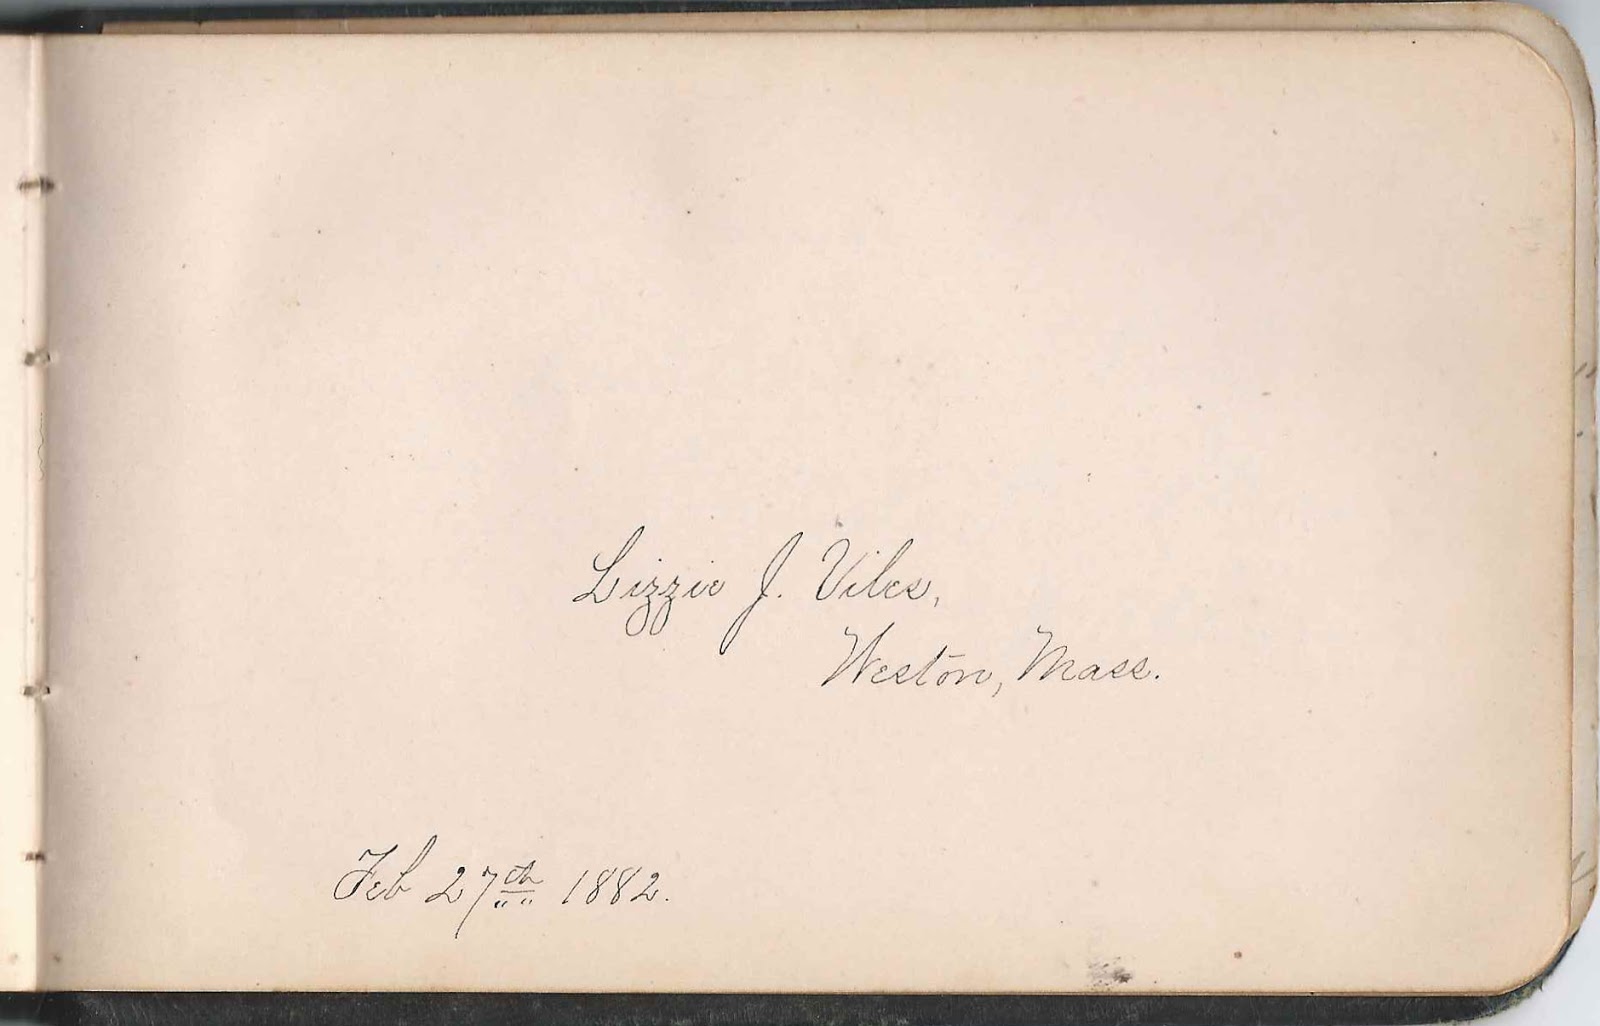 Lizzie J. Viles,
Weston, Mass.
Feb 27th 1882.